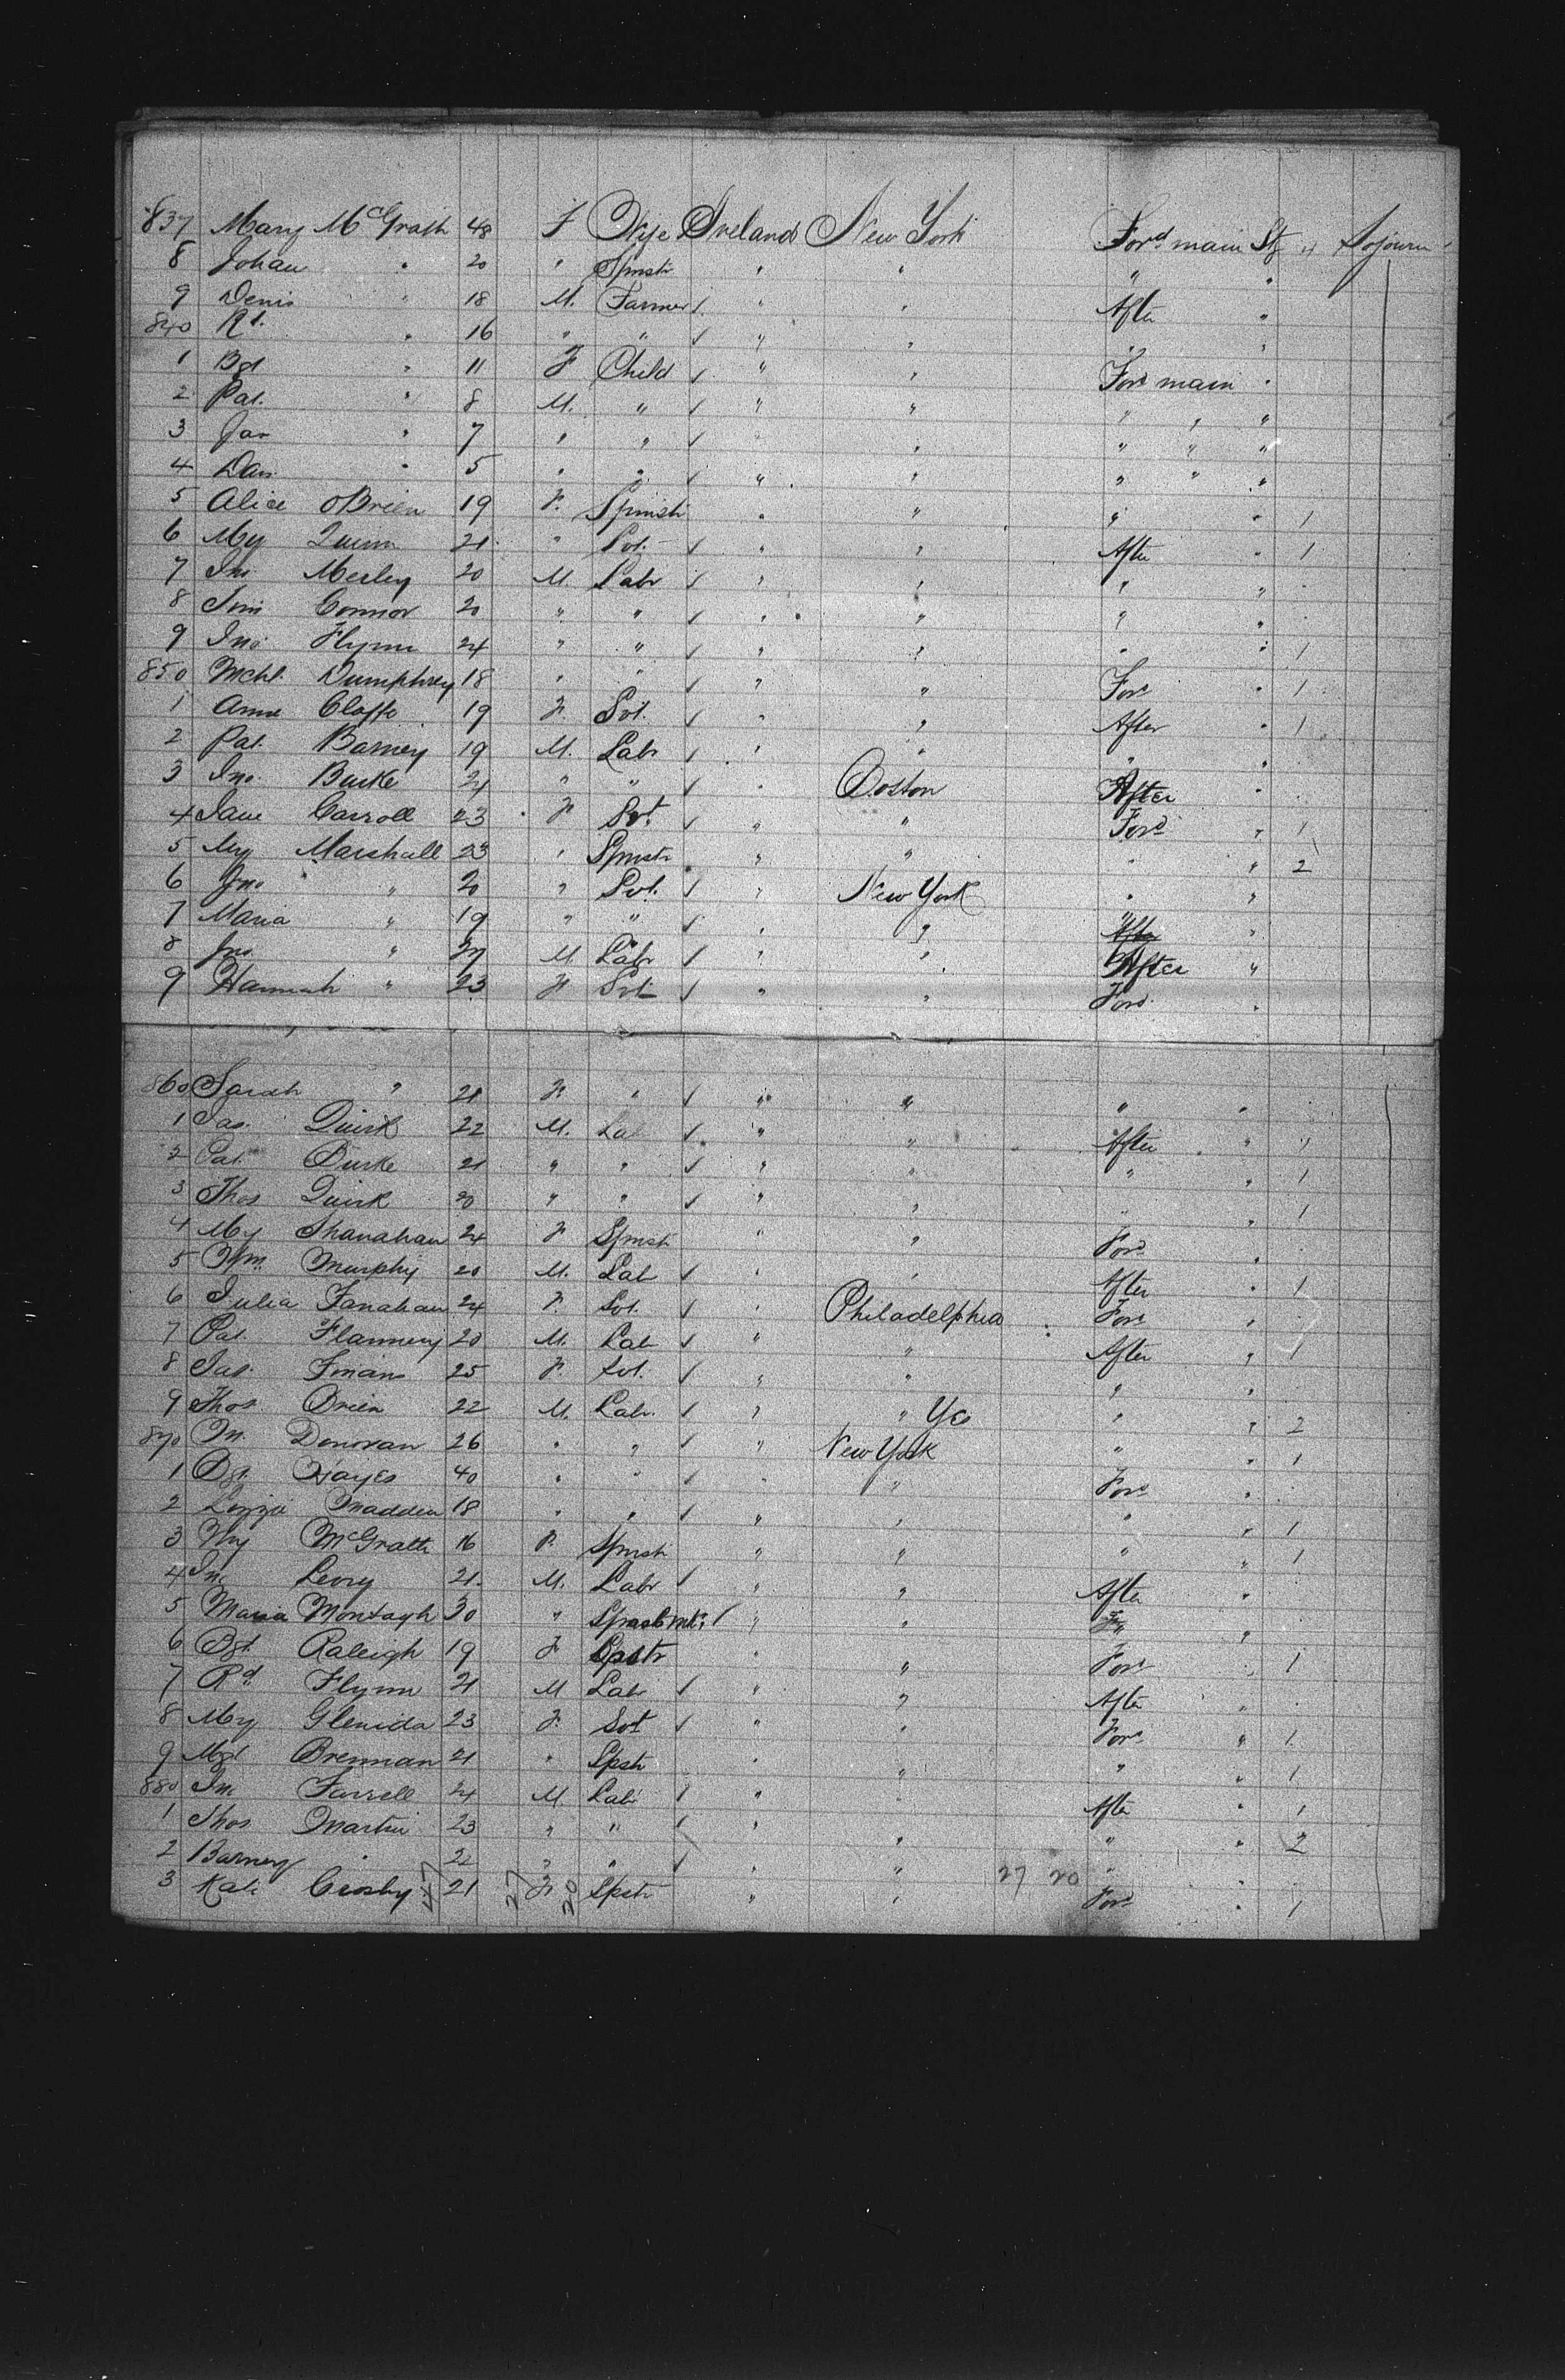 837 Mary McGrath 48 F Wife Ireland New York Ford main St 4 Sojourn
8 Johan " 20 " Spnstr " " " "
9 Denis " 18 M. Farmer " " After "
840 Rd. " 16 " " " " " "
1 Bgt " 11 F Child " " Ford main "
2 Pat. " 8 M. " " " " " "
3 Jas " 7 " " " " " " "
4 Dan " 5 " " " " " " "
5 Alice OBrien 19 F. Spinstr " " " " 1
6 My Quinn 21 " Svt. " " After " 1
7 Jno Merley 20 M Labr " " " "
8 Tim Connor 20 " " " " " "
9 Jno Flynn 24 " " " " " " 1
850 Mchl. Dumphrey 18 " " " " Ford " 1
1 Anne Claffe 19 F. Svt. " " After " 1
2 Pat. Barney 19 M. Labr " " " "
3 Jno. Burke 24 " " " Boston After "
4 Jane Carroll 23 F Svt. " " Ford " 1
5 My Marshall 23 " Spnstr " " " " 2
6 Jno " 20 " Svt. " New York " "
7 Maria " 19 " " " " " "
8 Jno. " 27 M Labr " " After "
9 Hannah " 23 F Svt " " Ford "
860 Sarah " 21 F " " " " "
1 Jas. Quirk 22 M. Lab " " After " 1
2 Pat. Burke 21 " " " " " " 1
3 Thos Quirk 20 " " " " " " 1
4 My Shanahan 24 F Spnstr " " Ford "
5 Wm. Murphy 20 M. Lab " " After " 1
6 Julia Fanahan 24 F. Svt. " Philadelphia Ford "
7 Pat. Flannery 20 M. Lab " " After " 1
8 Jas. 25 F. Svt. " " " "
9 Thos. Brien 22 M. Labr. " " " " 2
870 Jn. Donovan 26 " " " New York " " 1
1 Bgt. Hayes 40 " " " " Ford "
2 Lizzie Madden 18 " " " " " " 1
3 My McGrath 16 F. Spnstr " " " " 1
4 Jno Leory 21. M. Labr " " After "
5 Maria Montagh 30 " " " "
6 Bgt. Raleigh 19 F Spstr " " Ford " 1
7 Rd. Flynn 21 M Labr " " After "
8 My Glenida 23 F. Svt " " Ford " 1
9 Mgt. Brennan 21 " Spstr " " " " 1
880 Jno Farrell 24 M. Labr " " After " 1
1 Thos. Martin 23 " " " " " " 2
2 Barney " 22 " " " " 27 20 "
3 Kate Crosby 47 21 27 F 20 Spstr " " Ford " 1